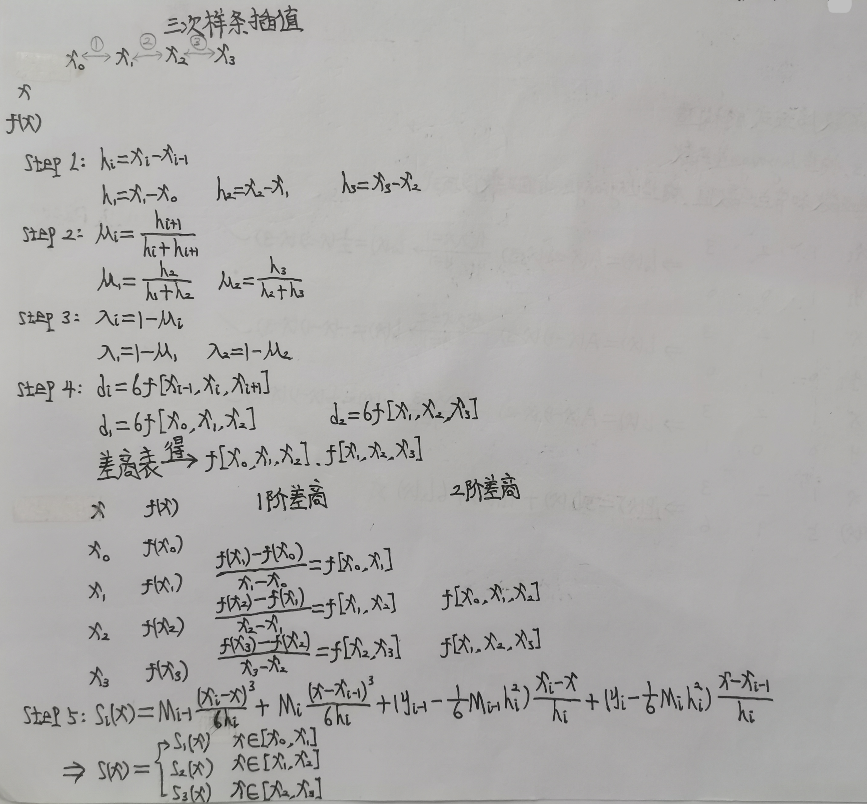 三次样条插值
x₀ ①↔ x₁ ②↔ x₂ ③↔ x₃
x
f(x)
Step 1: hᵢ=xᵢ-xᵢ₋₁
h₁=x₁-x₀ h₂=x₂-x₁ h₃=x₃-x₂
Step 2: μᵢ=hᵢ₊₁/(hᵢ+hᵢ₊₁)
μ₁=h₂/(h₁+h₂) μ₂=h₃/(h₂+h₃)
Step 3: λᵢ=1-μᵢ
λ₁=1-μ₁ λ₂=1-μ₂
Step 4: dᵢ=6f[xᵢ₋₁,xᵢ,xᵢ₊₁]
d₁=6f[x₀,x₁,x₂] d₂=6f[x₁,x₂,x₃]
差商表 得→ f[x₀,x₁,x₂]、f[x₁,x₂,x₃]
x f(x) 1阶差商 2阶差商
x₀ f(x₀)
(f(x₁)-f(x₀))/(x₁-x₀)=f[x₀,x₁]
x₁ f(x₁)
(f(x₂)-f(x₁))/(x₂-x₁)=f[x₁,x₂] f[x₀,x₁,x₂]
x₂ f(x₂)
(f(x₃)-f(x₂))/(x₃-x₂)=f[x₂,x₃] f[x₁,x₂,x₃]
x₃ f(x₃)
Step 5: Sᵢ(x)=Mᵢ₋₁ (xᵢ-x)³/6hᵢ + Mᵢ (x-xᵢ₋₁)³/6hᵢ + (yᵢ₋₁ - 1/6 Mᵢ₋₁hᵢ²) (xᵢ-x)/hᵢ + (yᵢ - 1/6 Mᵢhᵢ²) (x-xᵢ₋₁)/hᵢ
S₁(x) x∈[x₀,x₁]
⇒ S(x)={ S₂(x) x∈[x₁,x₂]
S₃(x) x∈[x₂,x₃]